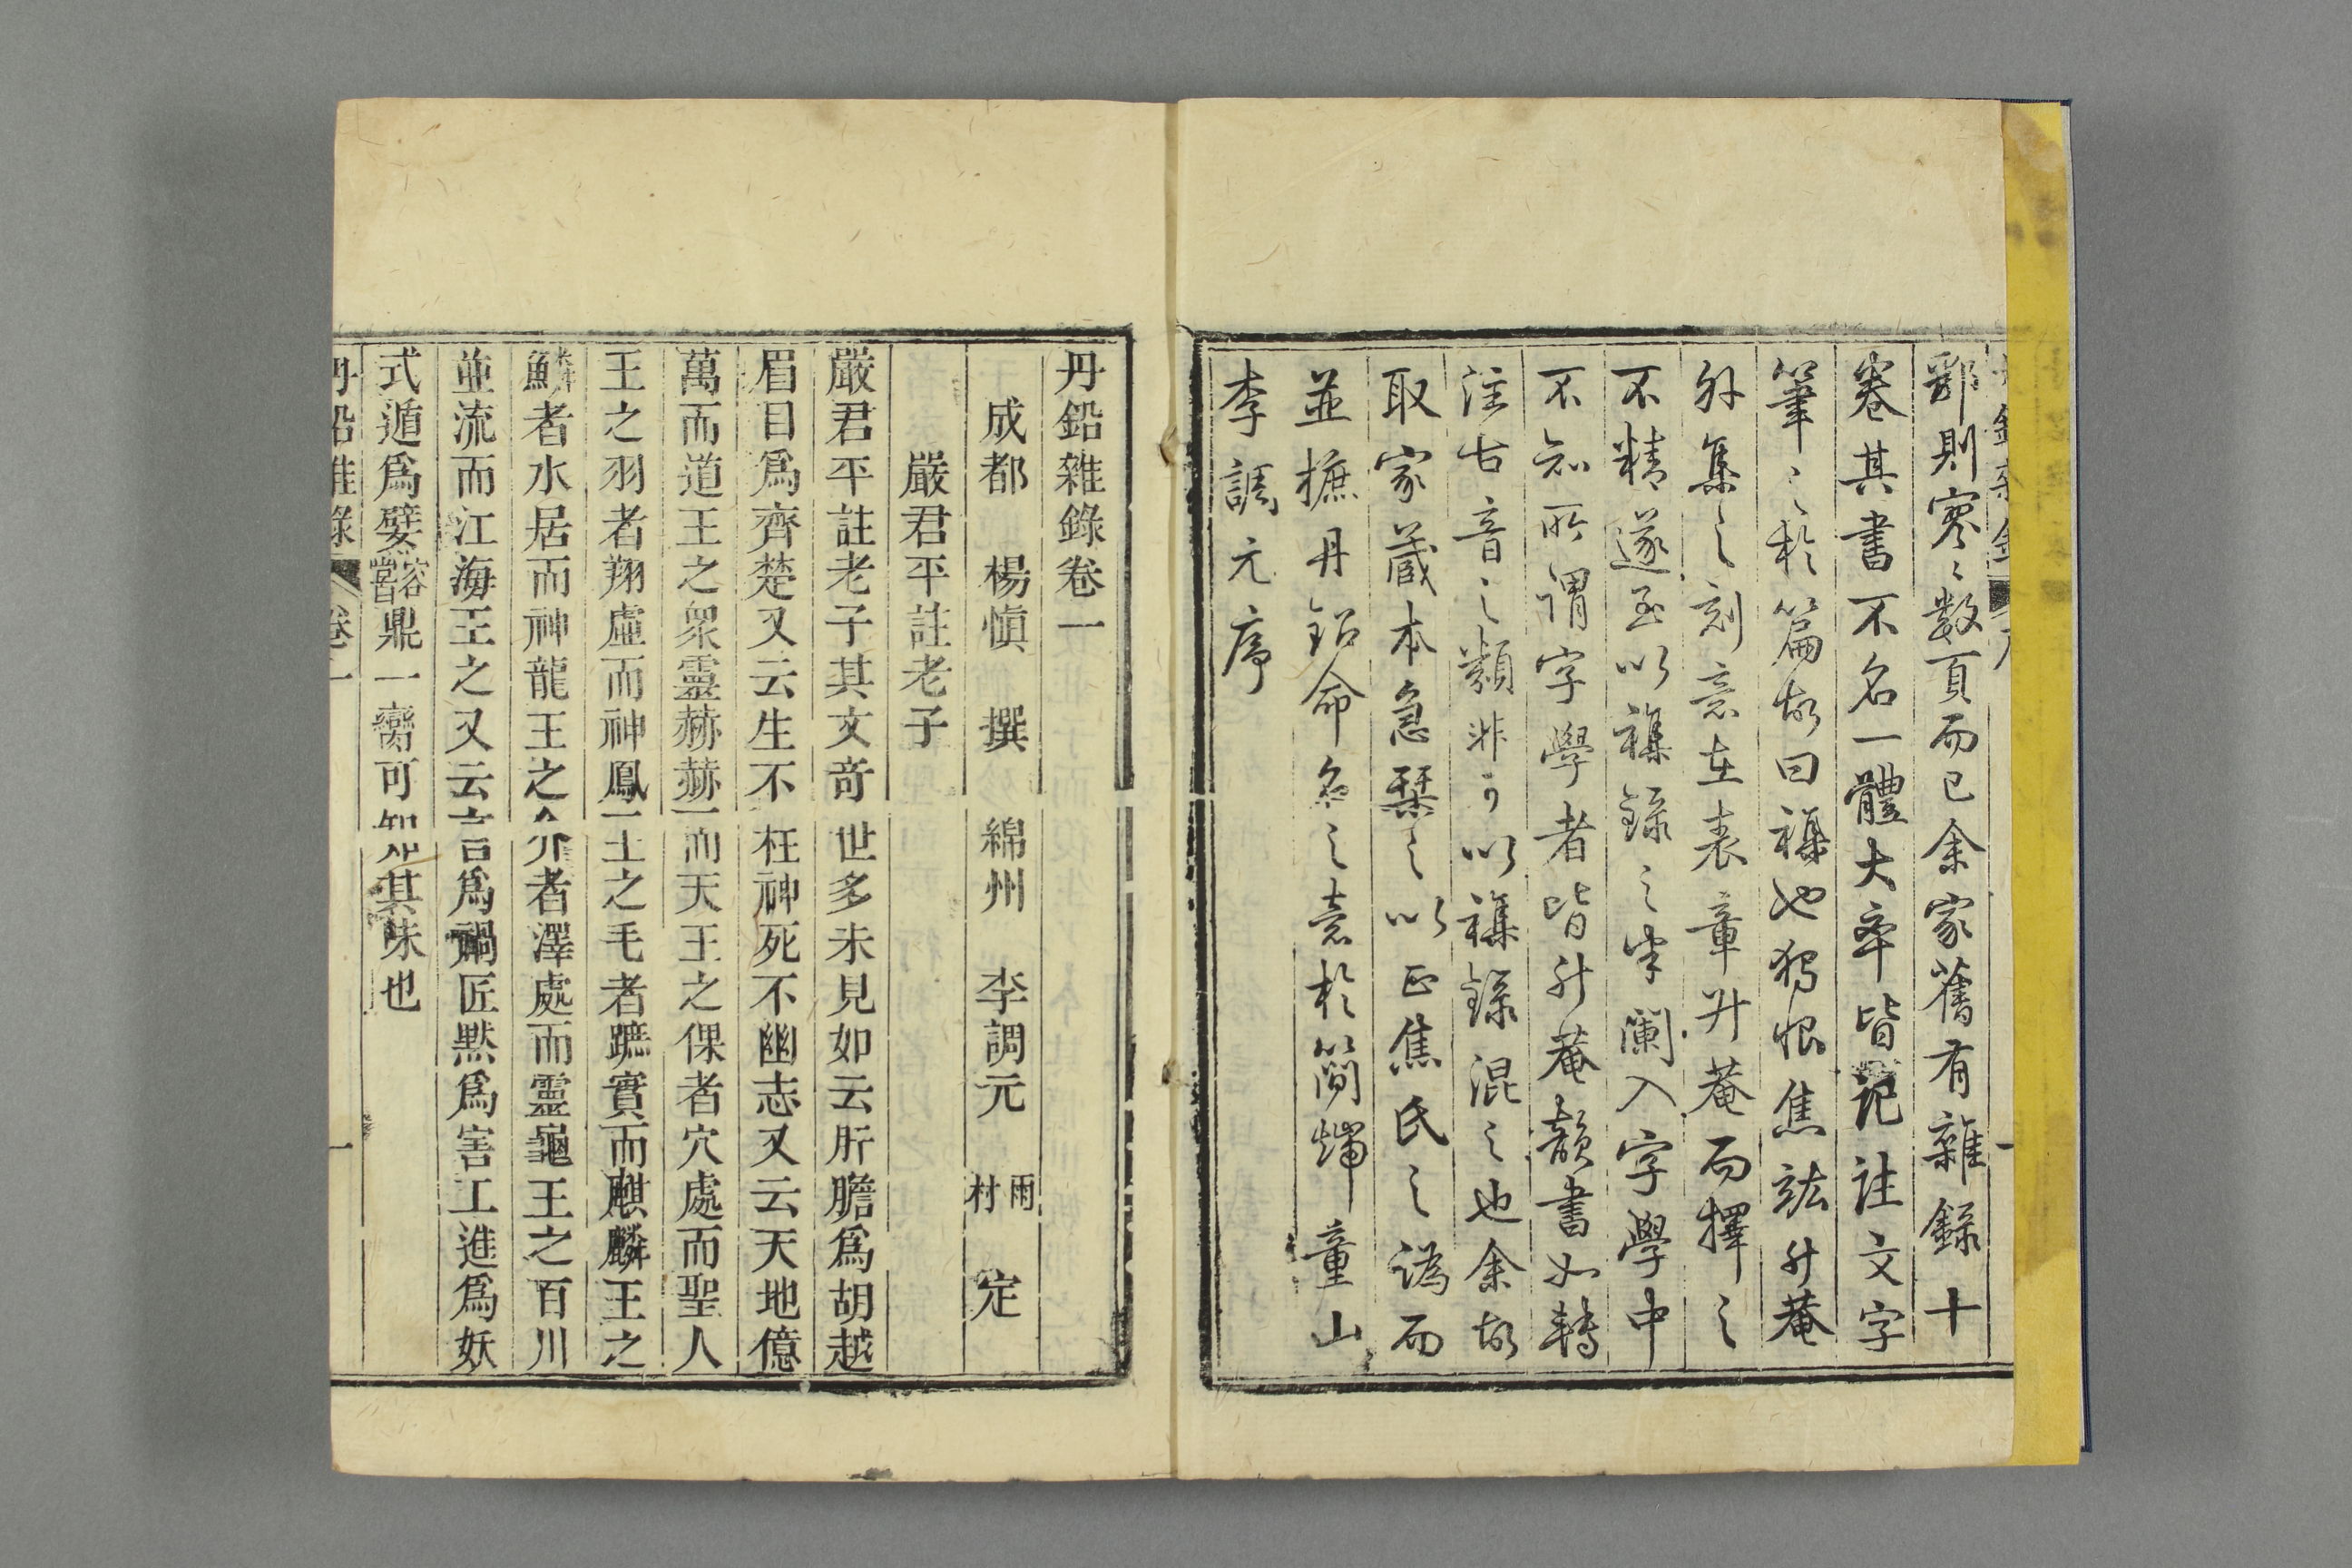 鄙則寥〻数頁而已余家舊有雜錄十
卷其書不名一體大率皆記註文字
筆之於篇故曰襍也獨恨焦竑升菴
外集之刻意在表章升菴而擇之
不精遂至以襍錄之半闌入字學中
不知所謂字學者皆升菴韻書如轉
注古音之類非可以襍錄混之也余故
取家藏本急栞之以正焦氏之譌而
並摭丹鉛命名之意於簡端 童山
李調元序
丹鉛雜錄卷一
成都 楊慎 撰 綿州 李調元 雨村 定
嚴君平註老子
嚴君平註老子其文奇世多未見如云肝膽爲胡越
眉目爲齊楚又云生不枉神死不幽志又云天地億
萬而道王之衆靈赫赫而天王之倮者穴處而聖人
王之羽者翔虛而神鳳王之毛者蹠實而麒麟王之
鱗者水居而神龍王之介者澤處而靈龜王之百川
並流而江海王之又云言爲禍匠默爲害工進爲妖
式遁爲嬖容䜭鼎一臠可知其味也
丹鉛雜錄 卷一 一